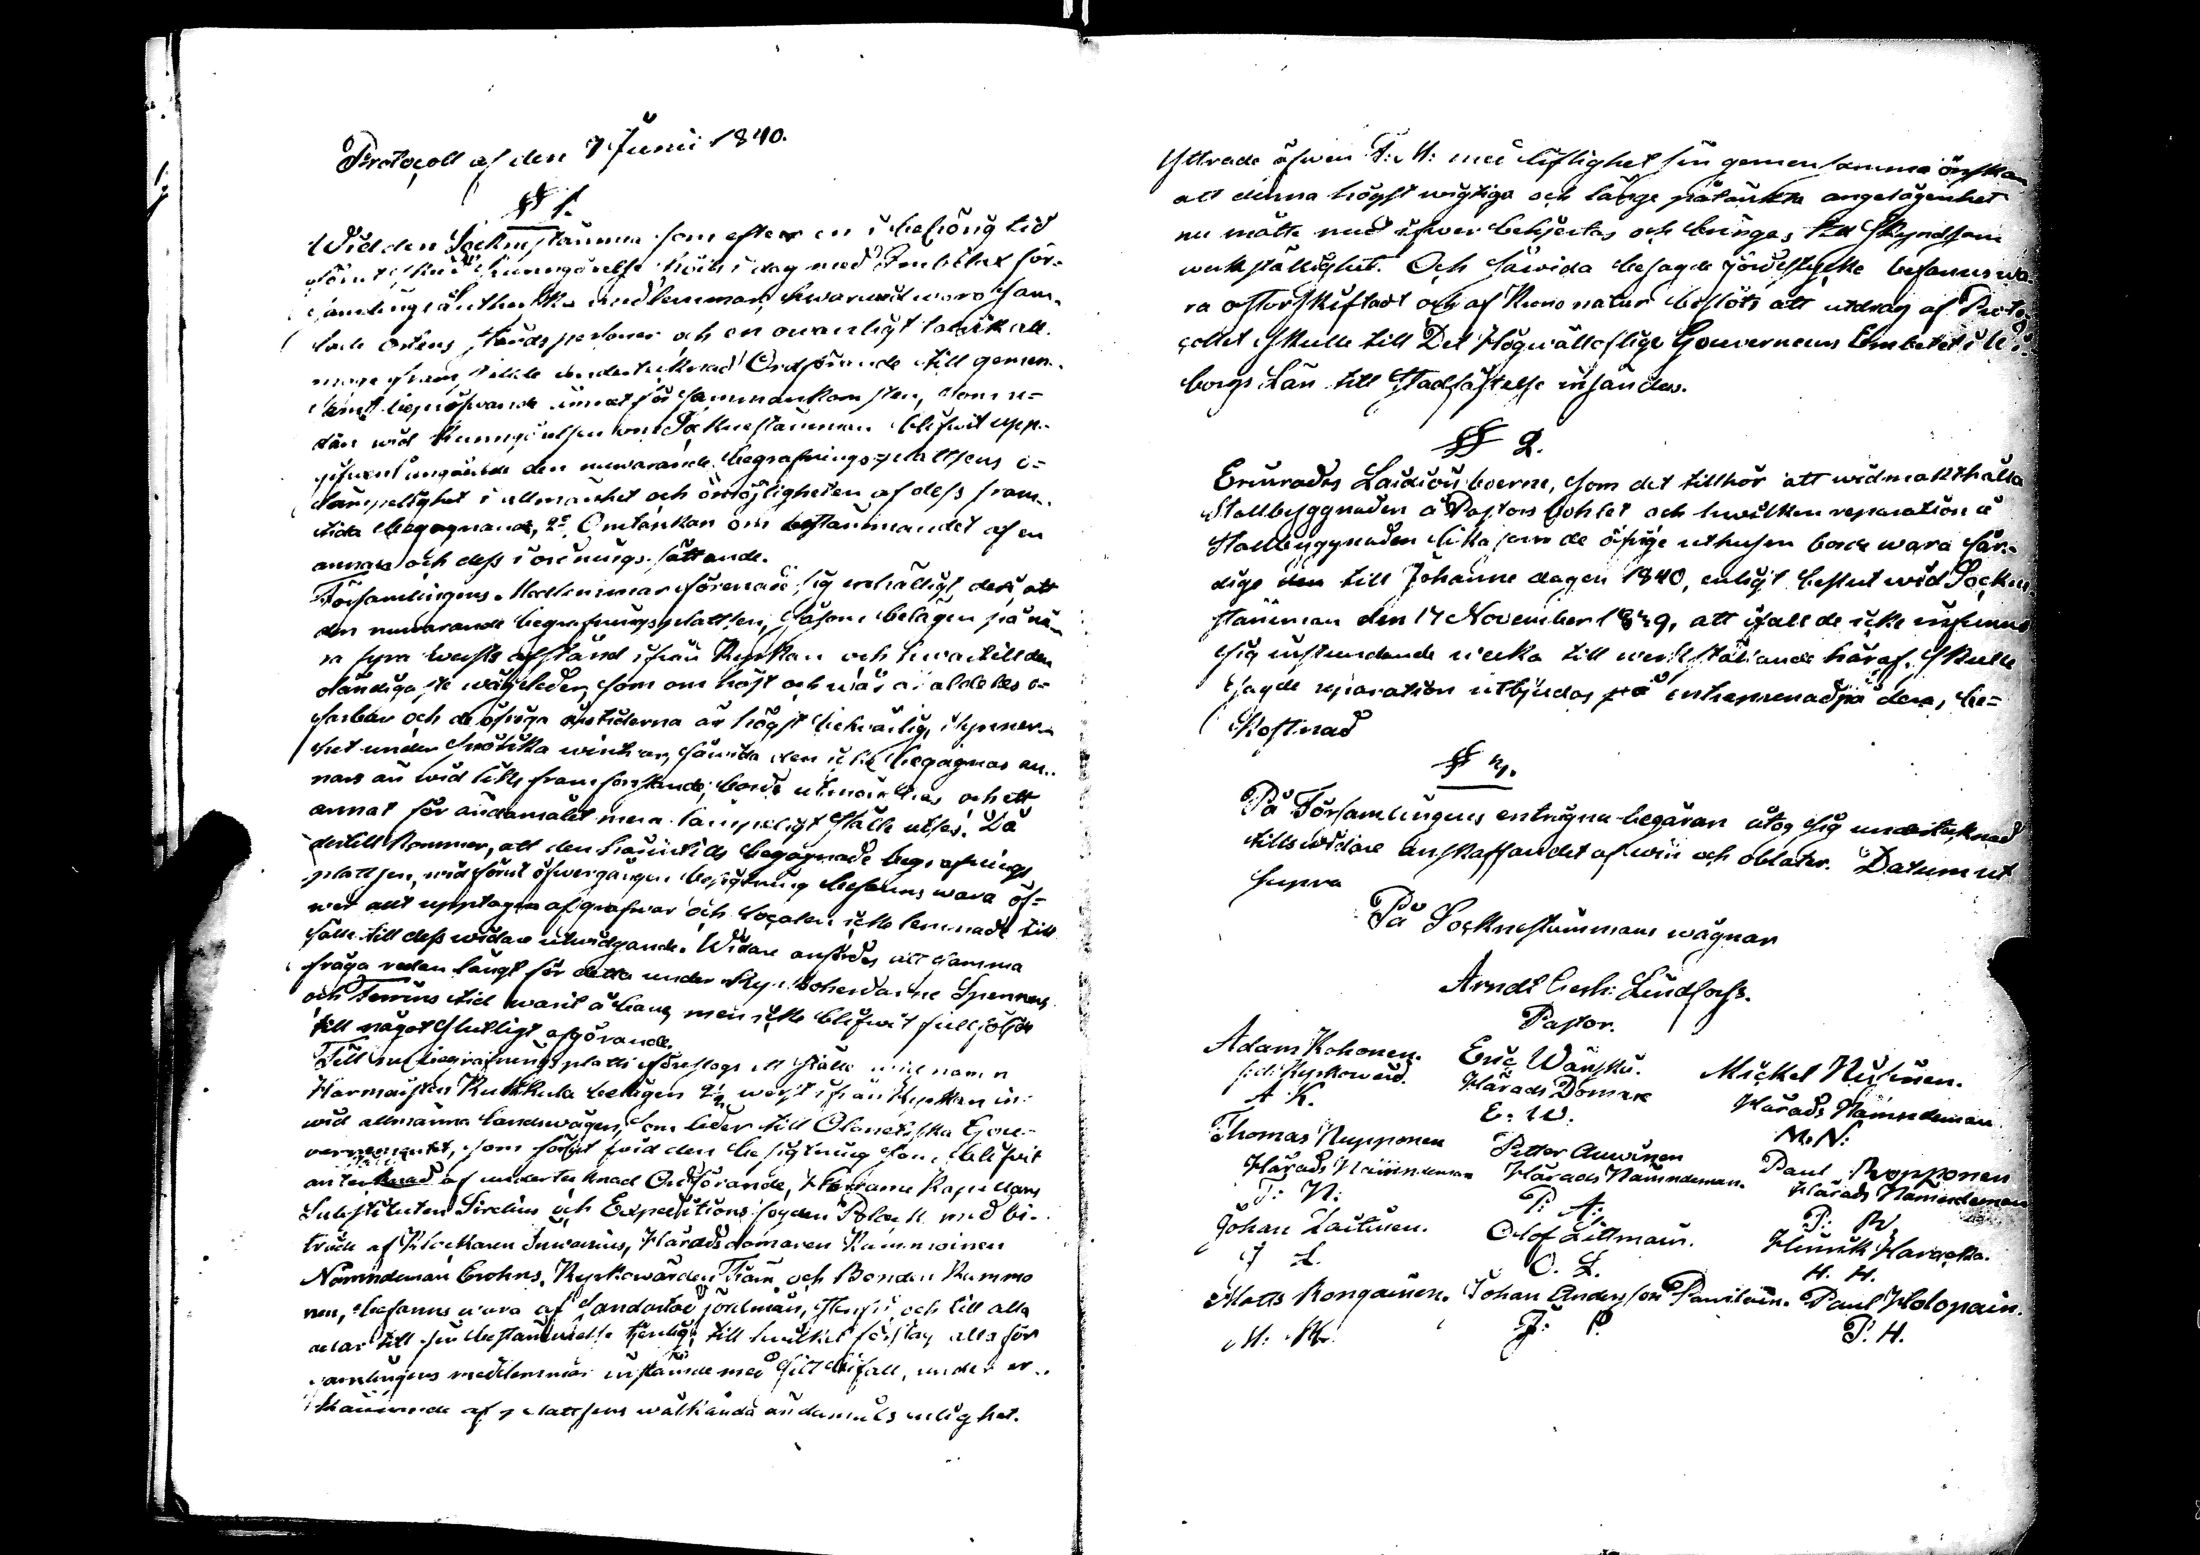 Protocoll af den 7 Junii 1840.
§§ 1.
Wid den Sockenstämma som efter en i behörig tid
förut skedd Kungörelse hölls i dag med Imbilax För-
samlings Lutherska medlemmar, hwarwid woro sam-
lade ortens ståndspersoner och en owanligt talrik all-
moge framstälde undertecknad Ordförande till gemen-
samt bepröfwande ämnet för sammankomsten, som re-
dan wid Kungörelsen om Socknestämman blifwit upp-
gifwent angående den nuwarande begrafnings-plattsens o-
lämpelighet i allmänhet och omöjligheten af dess fram-
tida begagnande, 2o Omtankan om bestämmandet af en
annan och dess i ordnings-sättande.
Församlingens Medlemmar förenade sig enhälligt deri, att
den nuwarande begrafningsplattsen, såsom belägen på nä-
ra fyra wersts afstånd ifrån Kyrkan och hwartill den
oländigaste wäg leder, som om höst och wår är aldeles o-
farbar och de öfriga årstiderna är högst beswärlig, synner-
het under snörika wintrar, såwida den icke begagnas an-
nars än wid liks framforslande, borde utmönstras och ett
annat för ändamålet mera lämpeligt ställe utses. Då
dertill kommer, att den hämtils begagnade begrafnings
plattsen, wid förut öfwergången besigtning befanns wara öf-
wer allt upptagen af grafwar och localen icke lemnade till
fälle till dess widare utwidgande. Widare anfördes att samma
fråga redan långt för detta under Kyrkoherdarne Spennerts
och Ferrins tid warit å bane, men icke blifwit fullföljd
till något slutligt afgörande.
Till ny begrafningsplatts föreslogs ett ställe wid namn
Harmaisten Kuikkula belägen 2½ werst ifrån Kyrkan in-
wid allmänna landswägen, som leder till Olonetska Gou-
vernementet, som förut wid den besigtning som blifwit
antecknad af undertecknad Ordförande, Herrarne Kapellans
Substituten Sirelius och Expeditions-fogden Polack med bi-
träde af Klockaren Inwenius, Häradsdomaren Kammoinen
Nämndeman Crohns, Kyrkowärden Träm och Bonden Kammo
nen, befanns wara af Sandartad jordmån, stenfri och till alla
delar till sin bestämmelse tjenlig, till hwilket förslag alla för
samlingens medlemmar instämde med sitt bifall, under er-
kännande af plattsens wälkända ändamålsenlighet.
Yttrade äfwen F. M: med liflighet sin gemensamma önskan
att denna högst wigtiga och länge påtänkta angelägenhet
nu måtte med ifwer behjertas och bringas till skyndsam
werkställighet. Och såwida besagde jordstycke befanns wa-
ra oStorskiftadt och af Krono natur beslöts att utdrag af Proto-
collet skulle till Det Högwälloflige Gouverneurs Embetet i Wi-
borgs Län till Stadfästelse insändas.
§§ 2.
Erinrades Laidiön boerne, som det tillhör att widmakthålla
Stallbyggnaden å Pastors bohlet och hwilken reparation å
Stallbyggnaden lika som de öfrige uthusen borde wara fär-
dige till Johanne dagen 1840, enligt beslut wid Socken-
stämman den 17 November 1839, att ifall de icke infinna
sig instundande wecka till werkställande häraf, skulle
sagde reparation utbjudas på entreprenad på deras be-
kostnad
§ 4.
På Församlingens enträgna begäran åtog sig undertecknad
tills widare anskaffandet af win och oblater. Datum ut
supra
På Socknestämmans wägnar
Arndt Lindfors.
Pastor.
Adam Kohonen. Eric Wänskä. Mickel Nuutinen.
f.d. Kyrkowärd. Härads Domare Härads Nämndeman
A K. E: W: M: N:
Thomas Nupponen Petter Auwinen Paul Ropponen
Härads Nämndeman Härads Nämndeman. Härads Nämndeman
T: N: P: A: P: R.
Johan Laitinen. Olof Littmain. Henrik Harackka.
J L. O. L. H. H.
Matts Rongainen. Johan Andersson Pawilain. Paul Holopain.
M: R. J: P. P. H.